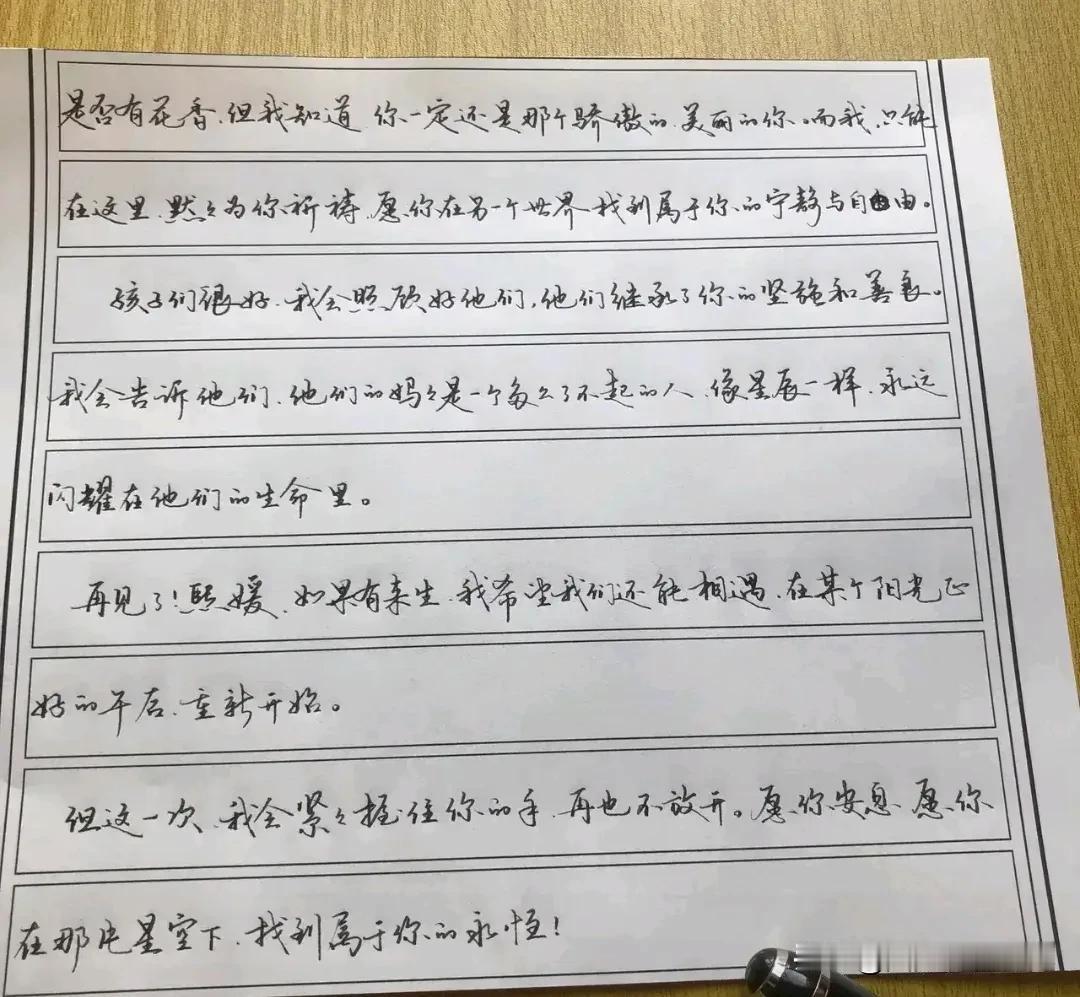 是否有花香,但我知道,你一定还是那个骄傲的,美丽的你。而我,只能
在这里,默々为你祈祷,愿你在另一个世界找到属于你的宁静与自由。
孩子们很好,我会照顾好他们,他们继承了你的坚强和善良。
我会告诉他们,他们的妈々是一个多么了不起的人,像星辰一样,永远
闪耀在他们的生命里。
再见了!熙媛,如果有来生,我希望我们还能相遇,在某个阳光正
好的午后,重新开始。
但这一次,我会紧々握住你的手,再也不放开。愿你安息,愿你
在那片星空下,找到属于你的永恒!